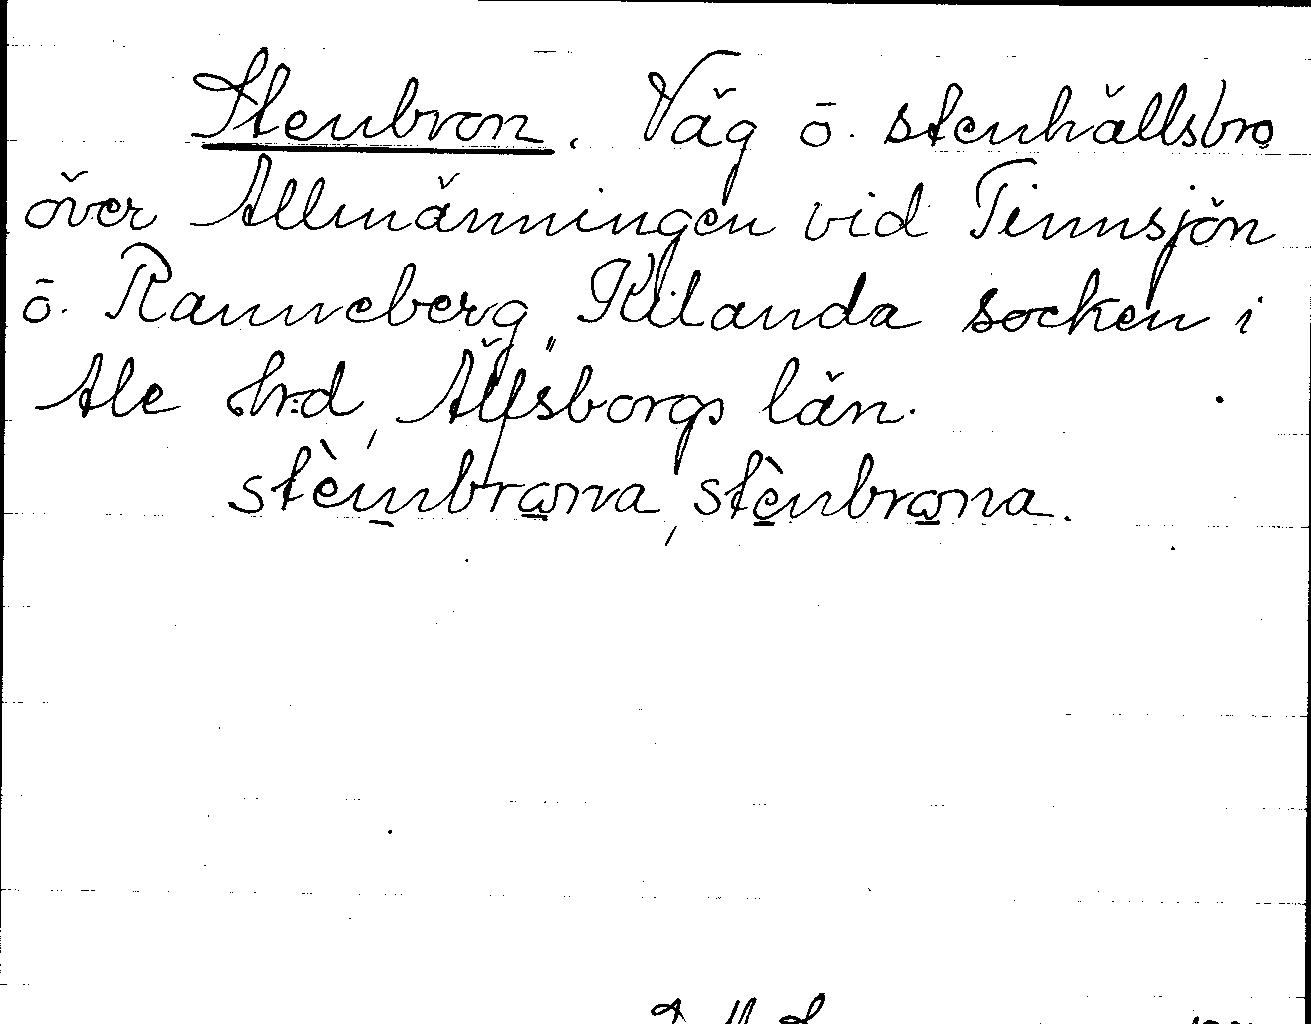 Stenbron. Väg o. stenhällsbro
över Allmänningen vid Tinnsjön
o. Ranneberg, Kilanda socken i
Ale hrd, Älfsborgs län.
stènbrona, stènbrona.